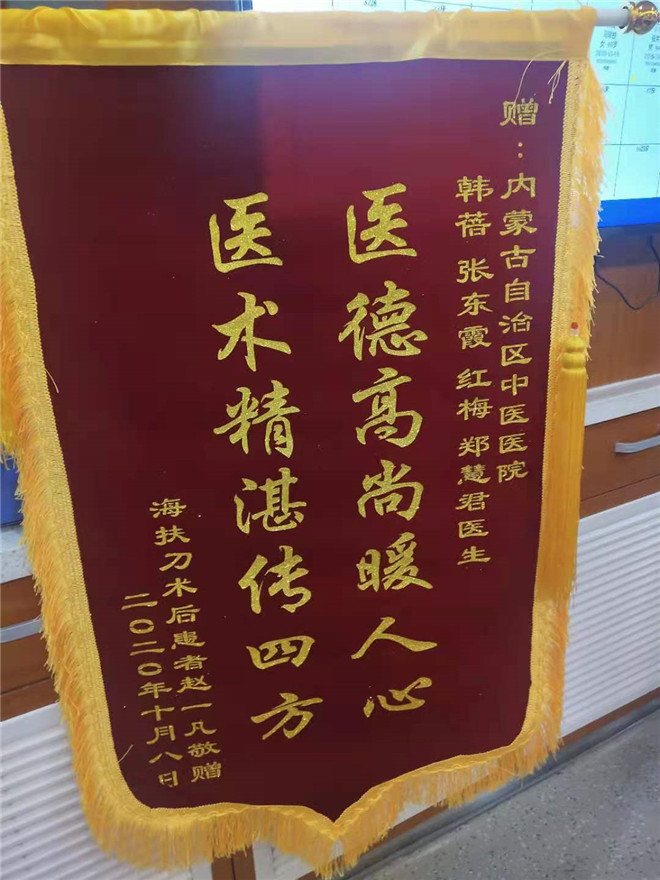 赠：内蒙古自治区中医医院
韩蓓 张东霞 红梅 郑慧君医生
医德高尚暖人心
医术精湛传四方
海扶刀术后患者赵一凡敬赠
二〇二〇年十月八日